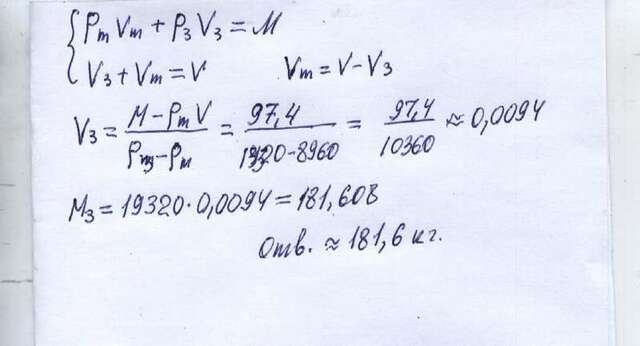 ρmVm + ρ3V3 = M
V3 + Vm = V Vm = V - V3
V3 = (M - ρmV)/(ρ3 - ρm) = 97,4/(19320 - 8960) = 97,4/10360 ≈ 0,0094
M3 = 19320 · 0,0094 = 181,608
Отв. ≈ 181,6 кг.